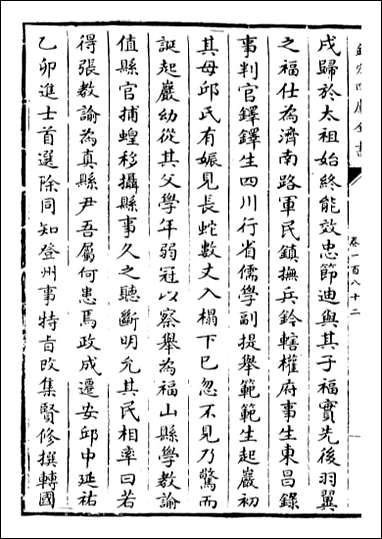 欽定四庫全書
卷一百八十二
戌歸於太祖始終能效忠節迪與其子福實先後羽翼
之福仕為濟南路軍民鎮撫兵鈐轄權府事生東昌錄
事判官鐸鐸生四川行省儒學副提舉範範生起巖初
其母邱氏有娠見長蛇數丈入榻下已忽不見乃驚而
誕起巖幼從其父學年弱冠以察舉為福山縣學教諭
值縣官捕蝗移攝縣事久之聽斷明允其民相率曰若
得張教諭為真縣尹吾屬何患焉政成遷安邱中延祐
乙卯進士首選除同知登州事特㫖改集賢修撰轉國